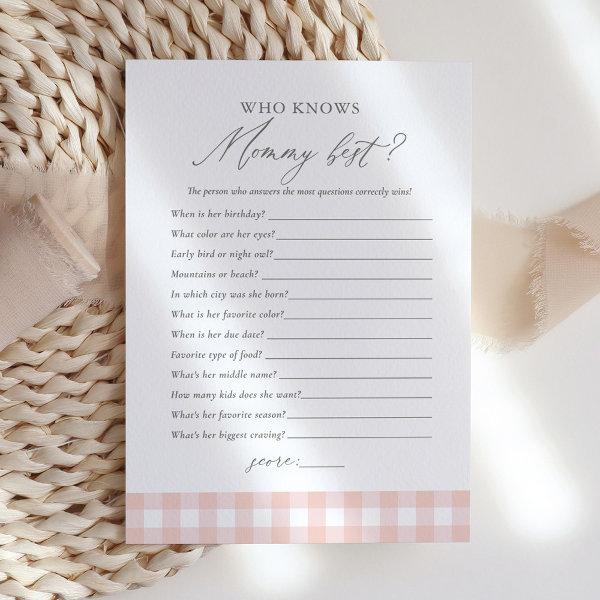 WHO KNOWS
Mommy best?
The person who answers the most questions correctly wins!
When is her birthday?
What color are her eyes?
Early bird or night owl?
Mountains or beach?
In which city was she born?
What is her favorite color?
When is her due date?
Favorite type of food?
What's her middle name?
How many kids does she want?
What's her favorite season?
What's her biggest craving?
score: